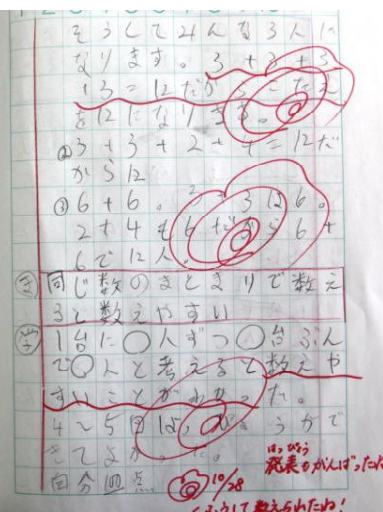 そうしてみんな3人に
なります。3+3+3
+3=12だからこたえ
を12になります。
②3+3+2+4=12だ
から12
③6+6。3+3は6。
2+4も6だから6+
6で12人。
ま 同じ数のまとまりで数え
ると数えやすい
学 1台に〇人ずつ〇台ぶん
で〇人と考えると数えや
すいことがわかった。
4〜5回
てよかった。
自分 点
10/28
はっぴょう
発表もがんばったね
くふうして数えられたね!